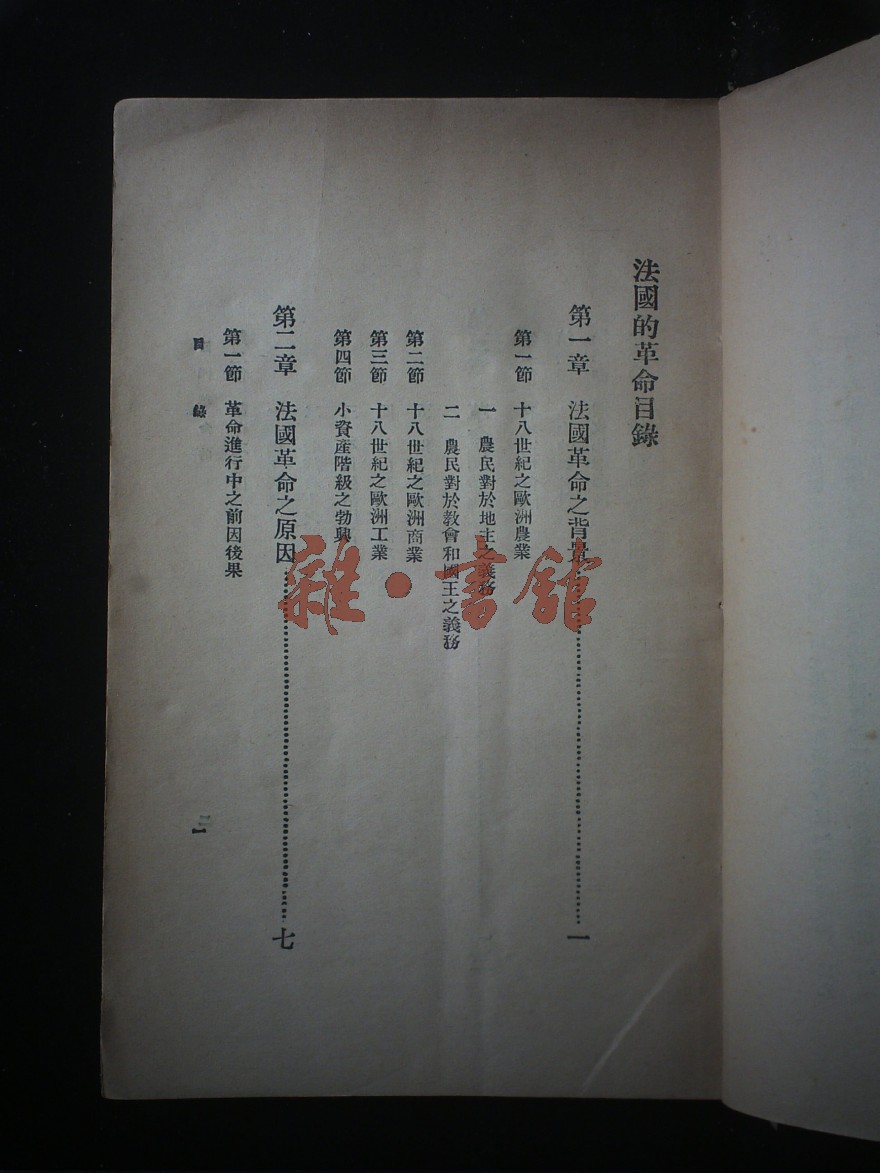 法國的革命目錄
第一章 法國革命之背景……一
第一節 十八世紀之歐洲農業
一 農民對於地主之義務
二 農民對於教會和國王之義務
第二節 十八世紀之歐洲商業
第三節 十八世紀之歐洲工業
第四節 小資產階級之勃興
第二章 法國革命之原因……七
第一節 革命進行中之前因後果
目錄
雜·書館